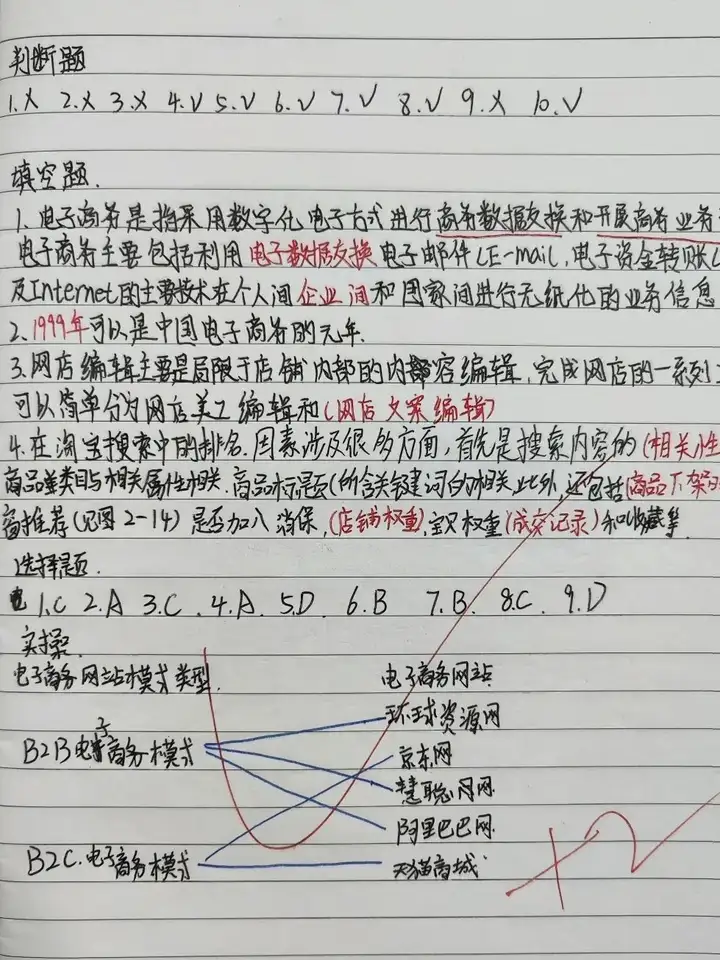 判断题
1.X 2.X 3.X 4.V 5.V 6.V 7.V 8.V 9.X 10.V
填空题.
1.电子商务是指采用数字化电子方式进行商务数据交换和开展商务业务
电子商务主要包括利用电子数据交换电子邮件(E-mail,电子资金转账(
及Internet的主要技术在个人间企业间和国家间进行无纸化的业务信息
2.1999年可以是中国电子商务的元年.
3.网店编辑主要是局限于店铺内部的内容编辑,完成网店的一系列
可以简单分为网店美工编辑和(网店文案编辑)
4.在淘宝搜索中的排名.因素涉及很多方面,首先是搜索内容的(相关)性
商品类目与相关属性相关.商品标题(所含关键词的相关,此外,还包括商品下架
窗推荐(见图2-14)是否加入消保,(店铺权重),宝贝权重(成交记录)和收藏等.
选择题.
1.C 2.A 3.C.4.A.5.D.6.B 7.B.8.C.9.D
实操.
电子商务网站模式类型. 电子商务网站
环球资源网
B2B电子商务模式
京东网
慧聪网
阿里巴巴网
B2C.电子商务模式
天猫商城